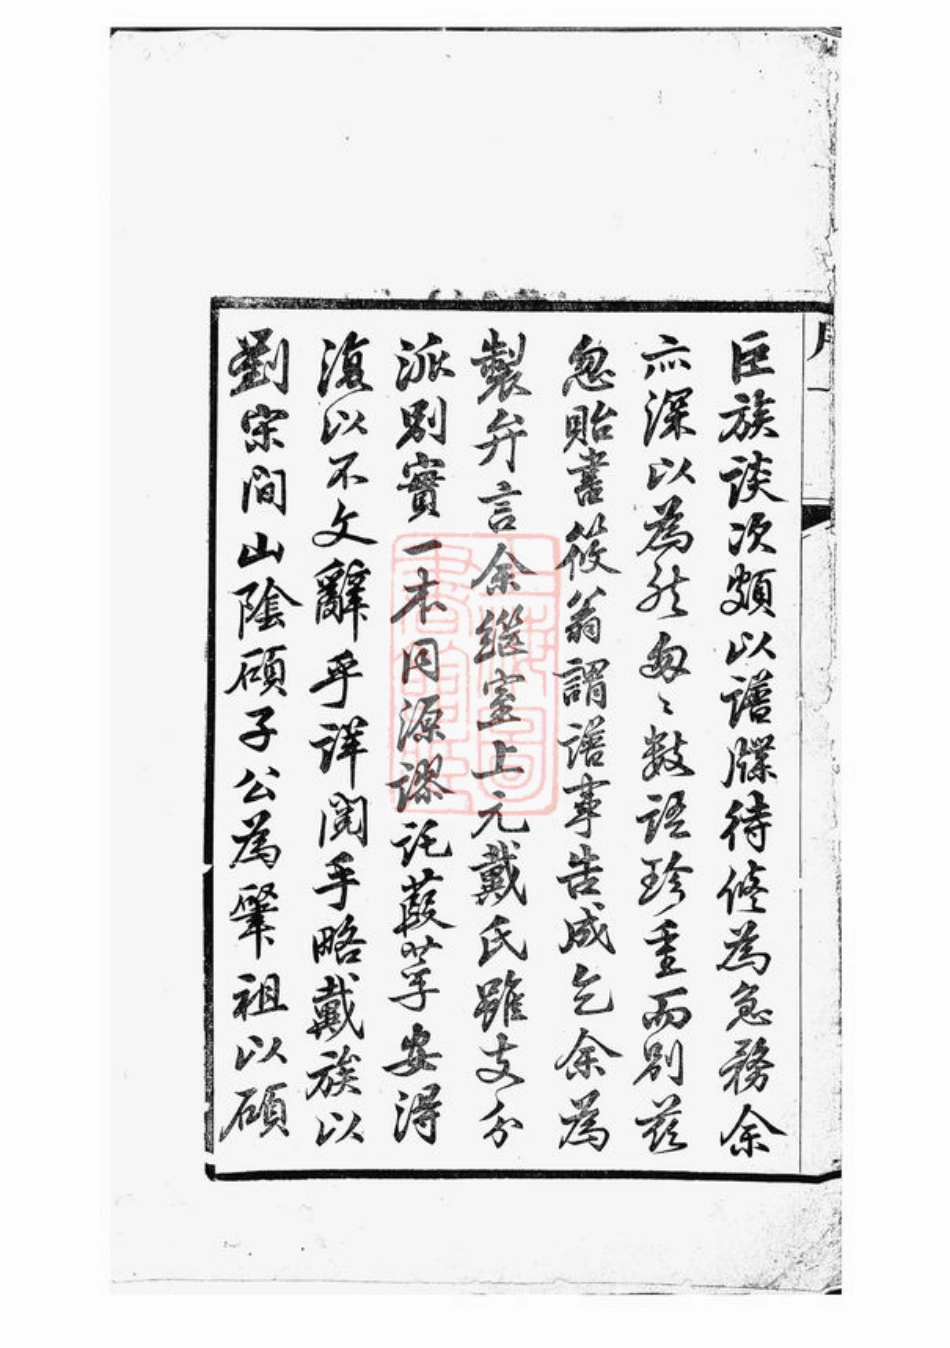 巨族談次頗以譜牒待修為急務余
亦深以為然匆〻數語珍重而別茲
忽貽書筱翁謂譜事告成乞余為
製弁言余繼室上元戴氏雖支分
派別實一本同源謬託葭莩安得
復以不文辭乎詳閱乎略戴族以
劉宋間山陰碩子公為肇祖以碩